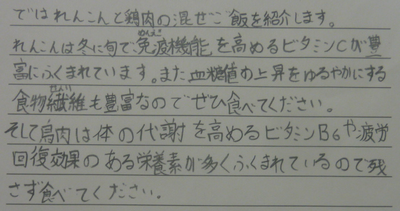 ではれんこんと鶏肉の混ぜご飯を紹介します。
れんこんは冬に旬で、免疫機能を高めるビタミンCが豊
富にふくまれています。また血糖値の上昇をゆるやかにする
食物繊維も豊富なのでぜひ食べてください。
そして鳥肉は体の代謝を高めるビタミンB6や疲労
回復効果のある栄養素が多くふくまれているので残
さず食べてください。